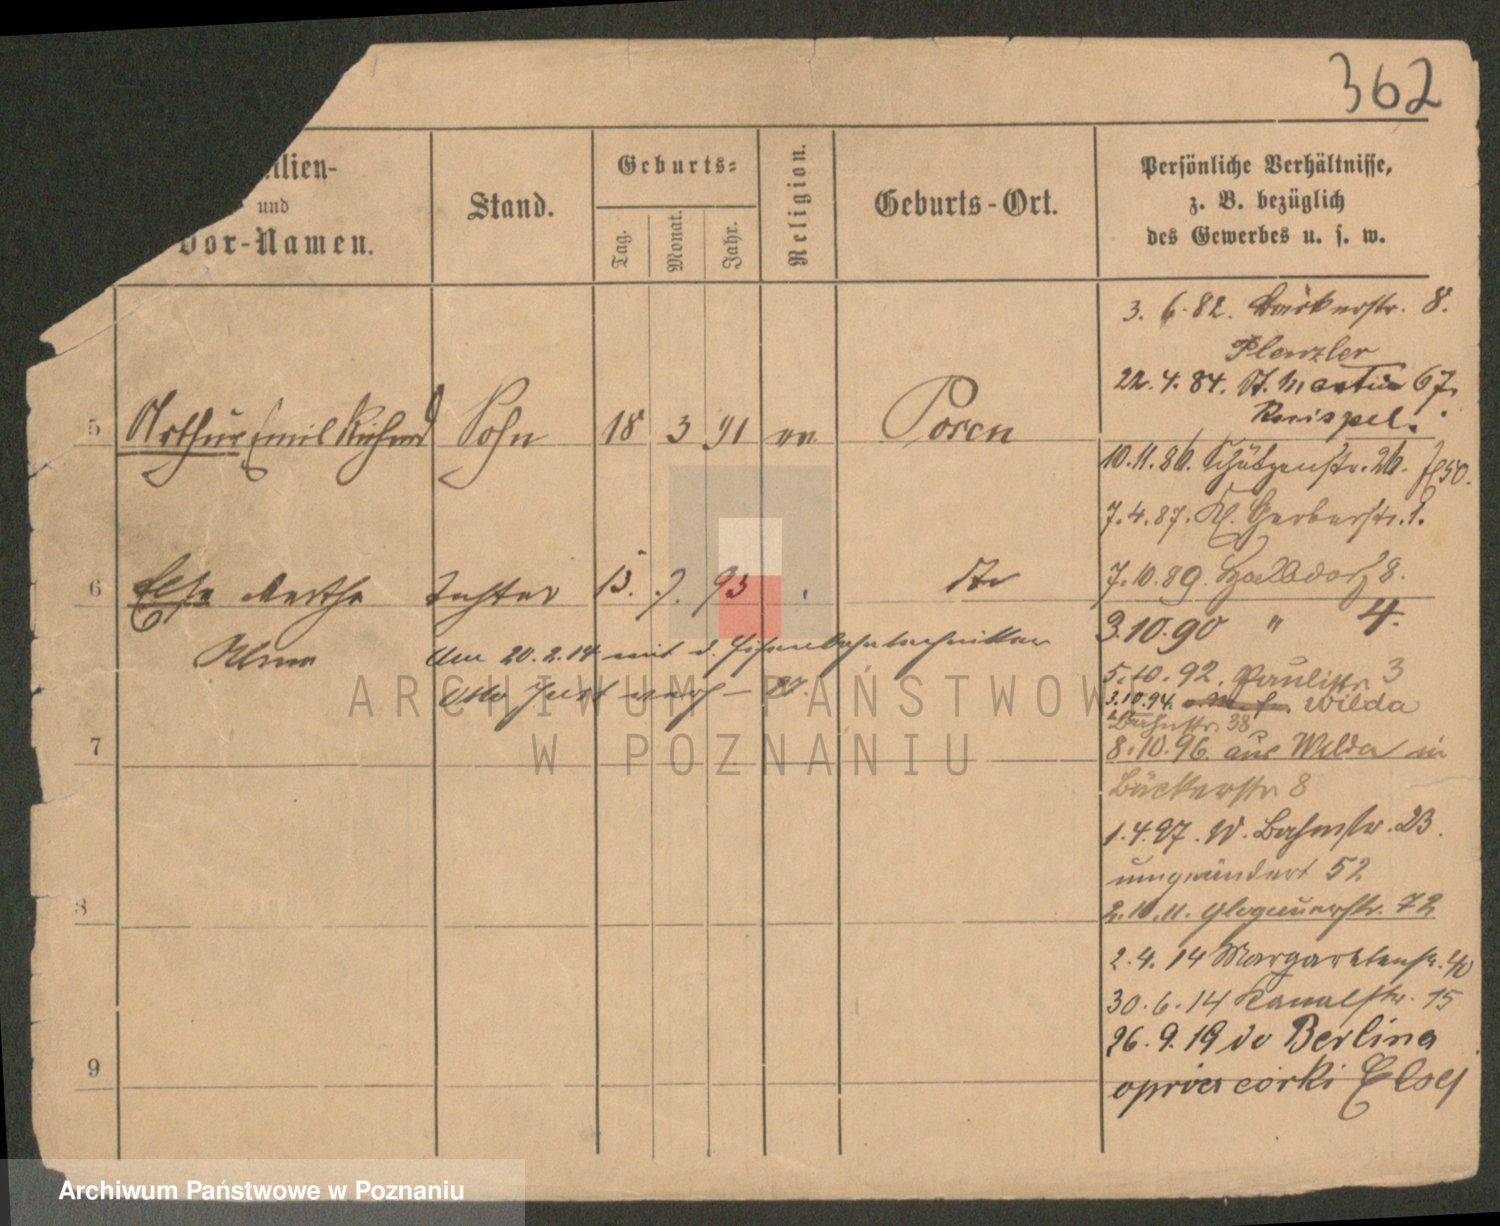 362
ilien-
und
Vor-Namen.
Stand.
Geburts-
Tag.
Monat.
Jahr.
Religion.
Geburts-Ort.
Persönliche Verhältnisse,
z. B. bezüglich
des Gewerbes u. s. w.
3. 6. 82. Bäckerstr. 8.
22. 4. 84. St. Martin 67.
5 Arthur Emil Richard Sohn 18 3 91 Posen
10. 11. 86. Schützenstr. 26.
7. 4. 87. Kl. Gerberstr.
6 Else Martha Tochter 93
7. 10. 89. Halbdorf 8.
3. 10. 90 " 4.
Am 20. 2. 14 mit d. Eisenbahntechniker
Otto
5. 10. 92. Paulistr. 3
3. 10. 94. Wilda
Bahnstr. 38
7
8. 10. 96. aus Wilda in
Bäckerstr 8
1. 4. 97. W. Bahnstr. 23.
umgeändert 52
8
2. 10. 11. Glogauerstr. 72
2. 4. 14 Margarethenstr. 40
30. 6. 14 Kanalstr. 15
26. 9. 19 do Berlina
9
oprócz córki Elsy
ARCHIWUM PAŃSTWOW
W POZNANIU
Archiwum Państwowe w Poznaniu